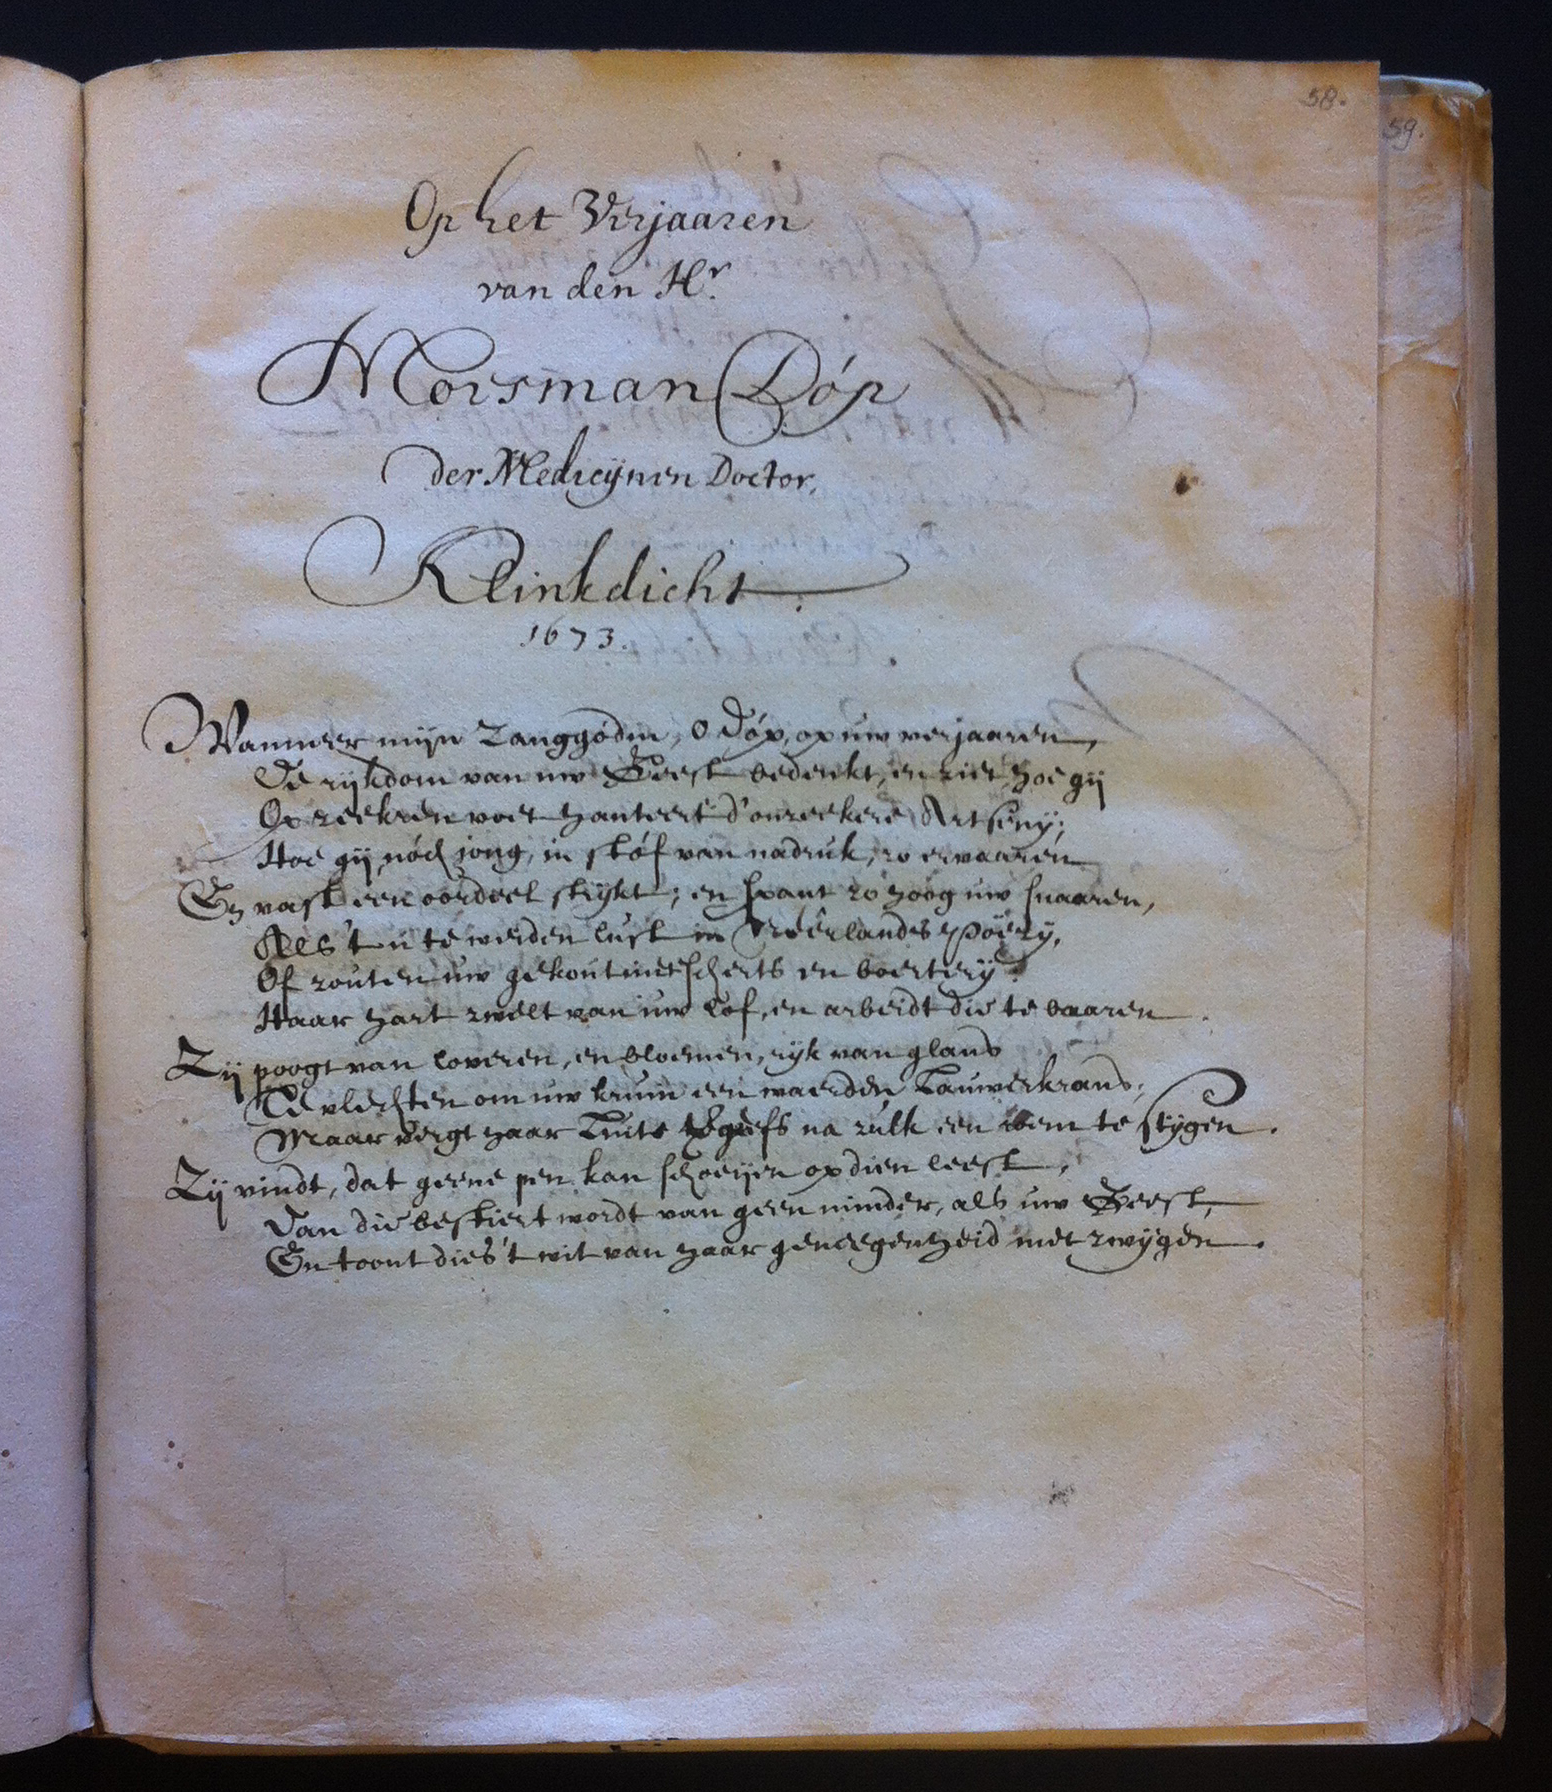 58.
59.
Op het Verjaaren
van den Hr.
Morsman Dóp
der Medicijnen Doctor,
Klinkdicht.
1673.
Wanneer mijn Zanggódin, O Dóp, op uw verjaaren,
De rijkdom van uw Geest bedenkt, en ziet, hoe gij
Op zeekren voet hanteert d'onzeekere Artseny;
Hoe gij, nóch jong, in stóf van nadruk, zo ervaaren
En vast een oordeel strijkt; en spant zo hoog uw snaaren,
Als 't u te werden lust in Neêrlands Poëzy,
Of zouten uw gekout met scherts en boertery:
Haar hart zwelt van uw lof, en arbeidt die te baaren.
Zij poogt van loveren, en bloemen, ryk van glans
Te vlechten om uw kruin een waerden Lauwerkrans;
Maar vergt haar Luit vergeefs na zulk een toon te stygen.
Zij vindt, dat geene pen kan schoeijen op dien leest,
Dan die bestiert wordt van geen minder, als uw Geest,
En toont dies 't wit van haar geneegenheid met zwygen.